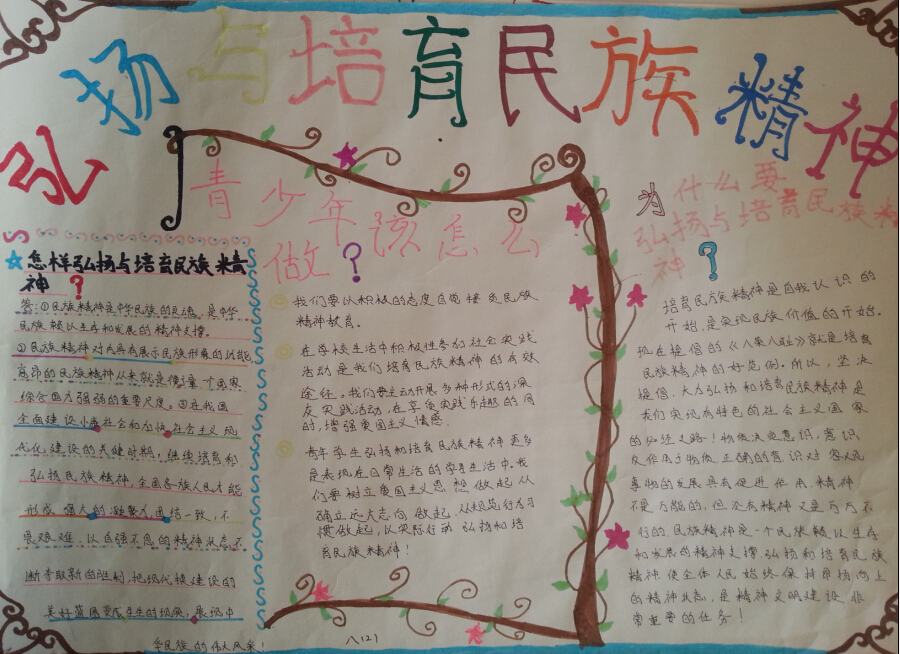 弘扬与培育民族精神
怎样弘扬与培育民族精
神?
答:①民族精神是中华民族的灵魂,是中华
民族赖以生存和发展的精神支撑。
②民族精神对内具有展示民族形象的功能
高昂的民族精神从来就是衡量一个国家
综合国力强弱的重要尺度。③在我国
全面建设小康社会和加快社会主义现
代化建设的关键时期,继续培育和
弘扬民族精神,全国各族人民才能
形成强大的凝聚力,团结一致,不
畏艰难,以自强不息的精神状态不
断夺取新的胜利,把现代化建设的
美好蓝图变成生生的现实,展现中
华民族的伟大风采!
青少年该怎么
做?
我们要以积极的态度自觉接受民族
精神教育。
在学校生活中积极性参加社会实践
活动是我们培育民族精神的有效
途径。我们要主动开展多种形式的深
度实践活动,在享受实践乐趣的同
时,增强爱国主义情感。
青年学生弘扬和培育民族精神更多
是表现在日常生活的学习生活中。我
们要树立爱国主义思想做起从
确立远大志向做起,从规范行为习
惯做起,以实际行动弘扬和培
育民族精神!
八(2)
为什么要
弘扬与培育民族精
神?
培育民族精神是自我认识的
开始,是实现民族价值的开始。
现在提倡的《八荣八耻》就是培育
民族精神的好范例。所以,坚决
提倡,大力弘扬和培育民族精神是
我们实现有特色的社会主义国家
的必经之路!物质决定意识,意识
反作用于物质,正确的意识对客观
事物的发展具有促进作用,精神
不是万能的,但没有精神又是万万不
行的,民族精神是一个民族赖以生存
和发展的精神支撑,弘扬和培育民族
精神,使全体人民始终保持昂扬向上
的精神状态,是精神文明建设非
常重要的任务!